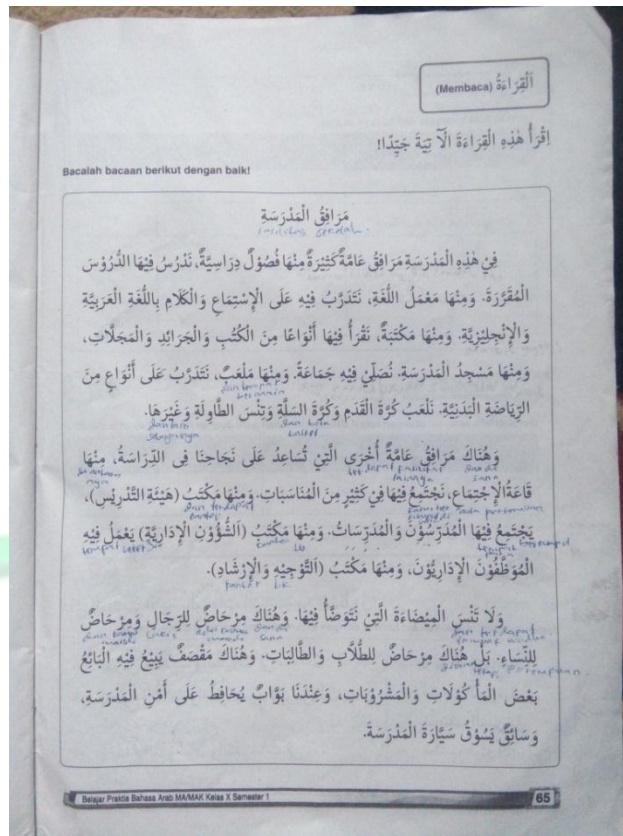 اَلْقِرَاءَةُ (Membaca)
اِقْرَأْ هٰذِهِ الْقِرَاءَةَ الْآتِيَةَ جَيِّدًا!
Bacalah bacaan berikut dengan baik!
مَرَافِقُ الْمَدْرَسَةِ
فِيْ هٰذِهِ الْمَدْرَسَةِ مَرَافِقُ عَامَّةٌ كَثِيْرَةٌ مِنْهَا فُصُوْلٌ دِرَاسِيَّةٌ، نَدْرُسُ فِيْهَا الدُّرُوْسَ
الْمُقَرَّرَةَ. وَمِنْهَا مَعْمَلُ اللُّغَةِ، نَتَدَرَّبُ فِيْهِ عَلَى الْإِسْتِمَاعِ وَالْكَلَامِ بِاللُّغَةِ الْعَرَبِيَّةِ
وَالْإِنْجِلِيْزِيَّةِ. وَمِنْهَا مَكْتَبَةٌ، نَقْرَأُ فِيْهَا أَنْوَاعًا مِنَ الْكُتُبِ وَالْجَرَائِدِ وَالْمَجَلَّاتِ،
وَمِنْهَا مَسْجِدُ الْمَدْرَسَةِ. نُصَلِّيْ فِيْهِ جَمَاعَةً. وَمِنْهَا مَلْعَبٌ، نَتَدَرَّبُ عَلَى أَنْوَاعٍ مِنَ
الرِّيَاضَةِ الْبَدَنِيَّةِ. نَلْعَبُ كُرَّةَ الْقَدَمِ وَكُرَّةَ السَّلَّةِ وَتِنْسَ الطَّاوِلَةِ وَغَيْرَهَا.
وَهُنَاكَ مَرَافِقُ عَامَّةٌ أُخْرَى الَّتِيْ تُسَاعِدُ عَلَى نَجَاحِنَا فِى الدِّرَاسَةُ، مِنْهَا
قَاعَةُ الْإِجْتِمَاعِ، نَجْتَمِعُ فِيْهَا فِيْ كَثِيْرٍ مِنَ الْمُنَاسَبَاتِ. وَمِنْهَا مَكْتَبُ (هَيْئَةِ التَّدْرِيْسِ)،
يَجْتَمِعُ فِيْهَا الْمُدَرِّسُوْنَ وَالْمُدَرِّسَاتُ. وَمِنْهَا مَكْتَبُ (اَلشُّؤُوْنِ الْإِدَارِيَّةِ) يَعْمَلُ فِيْهِ
الْمُوَظَّفُوْنَ الْإِدَارِيُّوْنَ، وَمِنْهَا مَكْتَبُ (اَلتَّوْجِيْهِ وَالْإِرْشَادِ).
وَلَا تَنْسَ الْمِيْضَاءَةَ الَّتِيْ نَتَوَضَّأُ فِيْهَا. وَهُنَاكَ مِرْحَاضٌ لِلرِّجَالِ وَمِرْحَاضٌ
لِلنِّسَاءِ. بَلْ هُنَاكَ مِرْحَاضٌ لِلطُّلَّابِ وَالطَّالِبَاتِ. وَهُنَاكَ مَقْصَفٌ يَبِيْعُ فِيْهِ الْبَائِعُ
بَعْضَ الْمَأْكُوْلَاتِ وَالْمَشْرُوْبَاتِ، وَعِنْدَنَا بَوَّابٌ يُحَافِظُ عَلَى أَمْنِ الْمَدْرَسَةِ،
وَسَائِقٌ يَسُوْقُ سَيَّارَةَ الْمَدْرَسَةَ.
Belajar Praktis Bahasa Arab MA/MAK Kelas X Semester 1
65